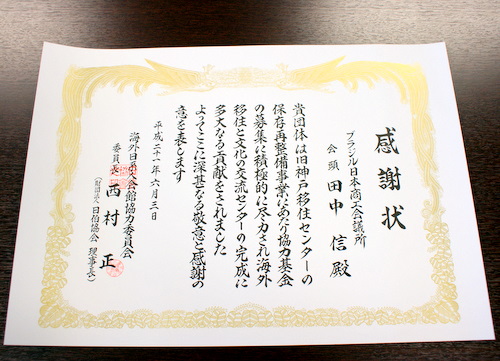 感謝状
ブラジル日本商工会議所
会頭 田中 信 殿
貴団体は旧神戸移住センターの
保存再整備事業にあたり協力基金
の募集に積極的に尽力され海外
移住と文化の交流センターの完成に
多大なる貢献をされました
よってここに深甚なる敬意と感謝の
意を表します
平成二十一年六月三日
海外日系人会館協力委員会
委員長 西村 正
(財団法人 日伯協会 理事長)